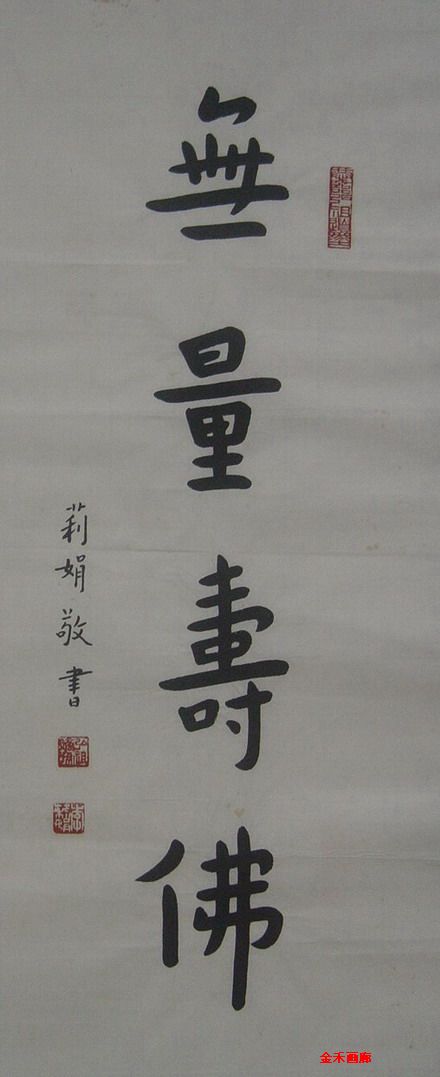 無量壽佛
莉娟敬書
金禾画廊